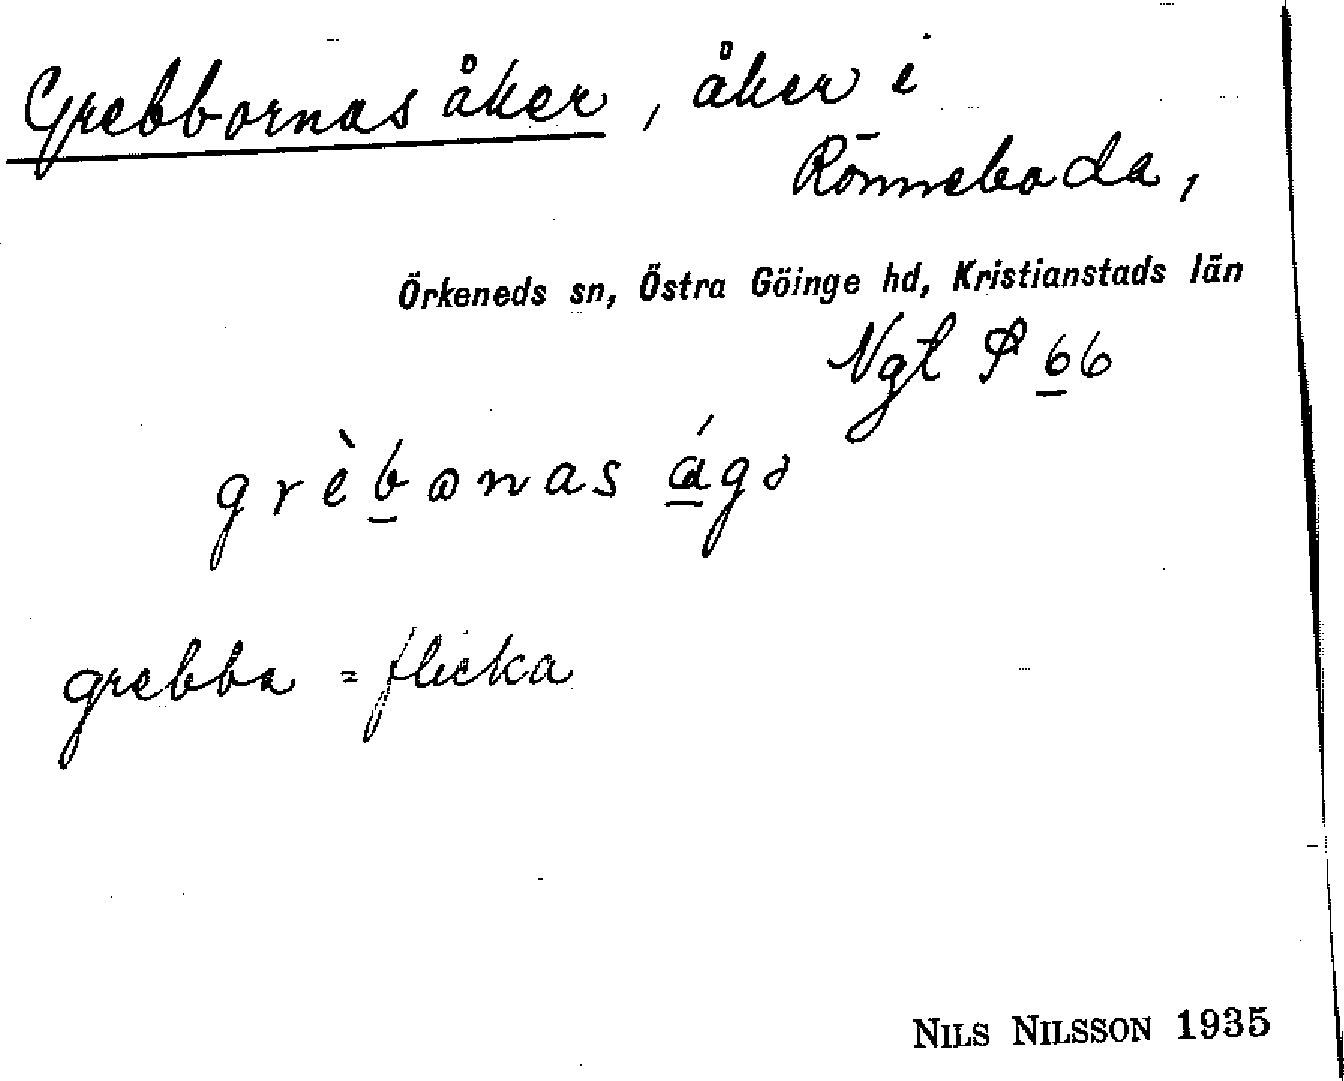 Grebbornas åker, åker i
Rönneboda,
Örkeneds sn, Östra Göinge hd, Kristianstads län
Ngt P 66
grèbɷnas ágə
grebba = flicka
NILS NILSSON 1935